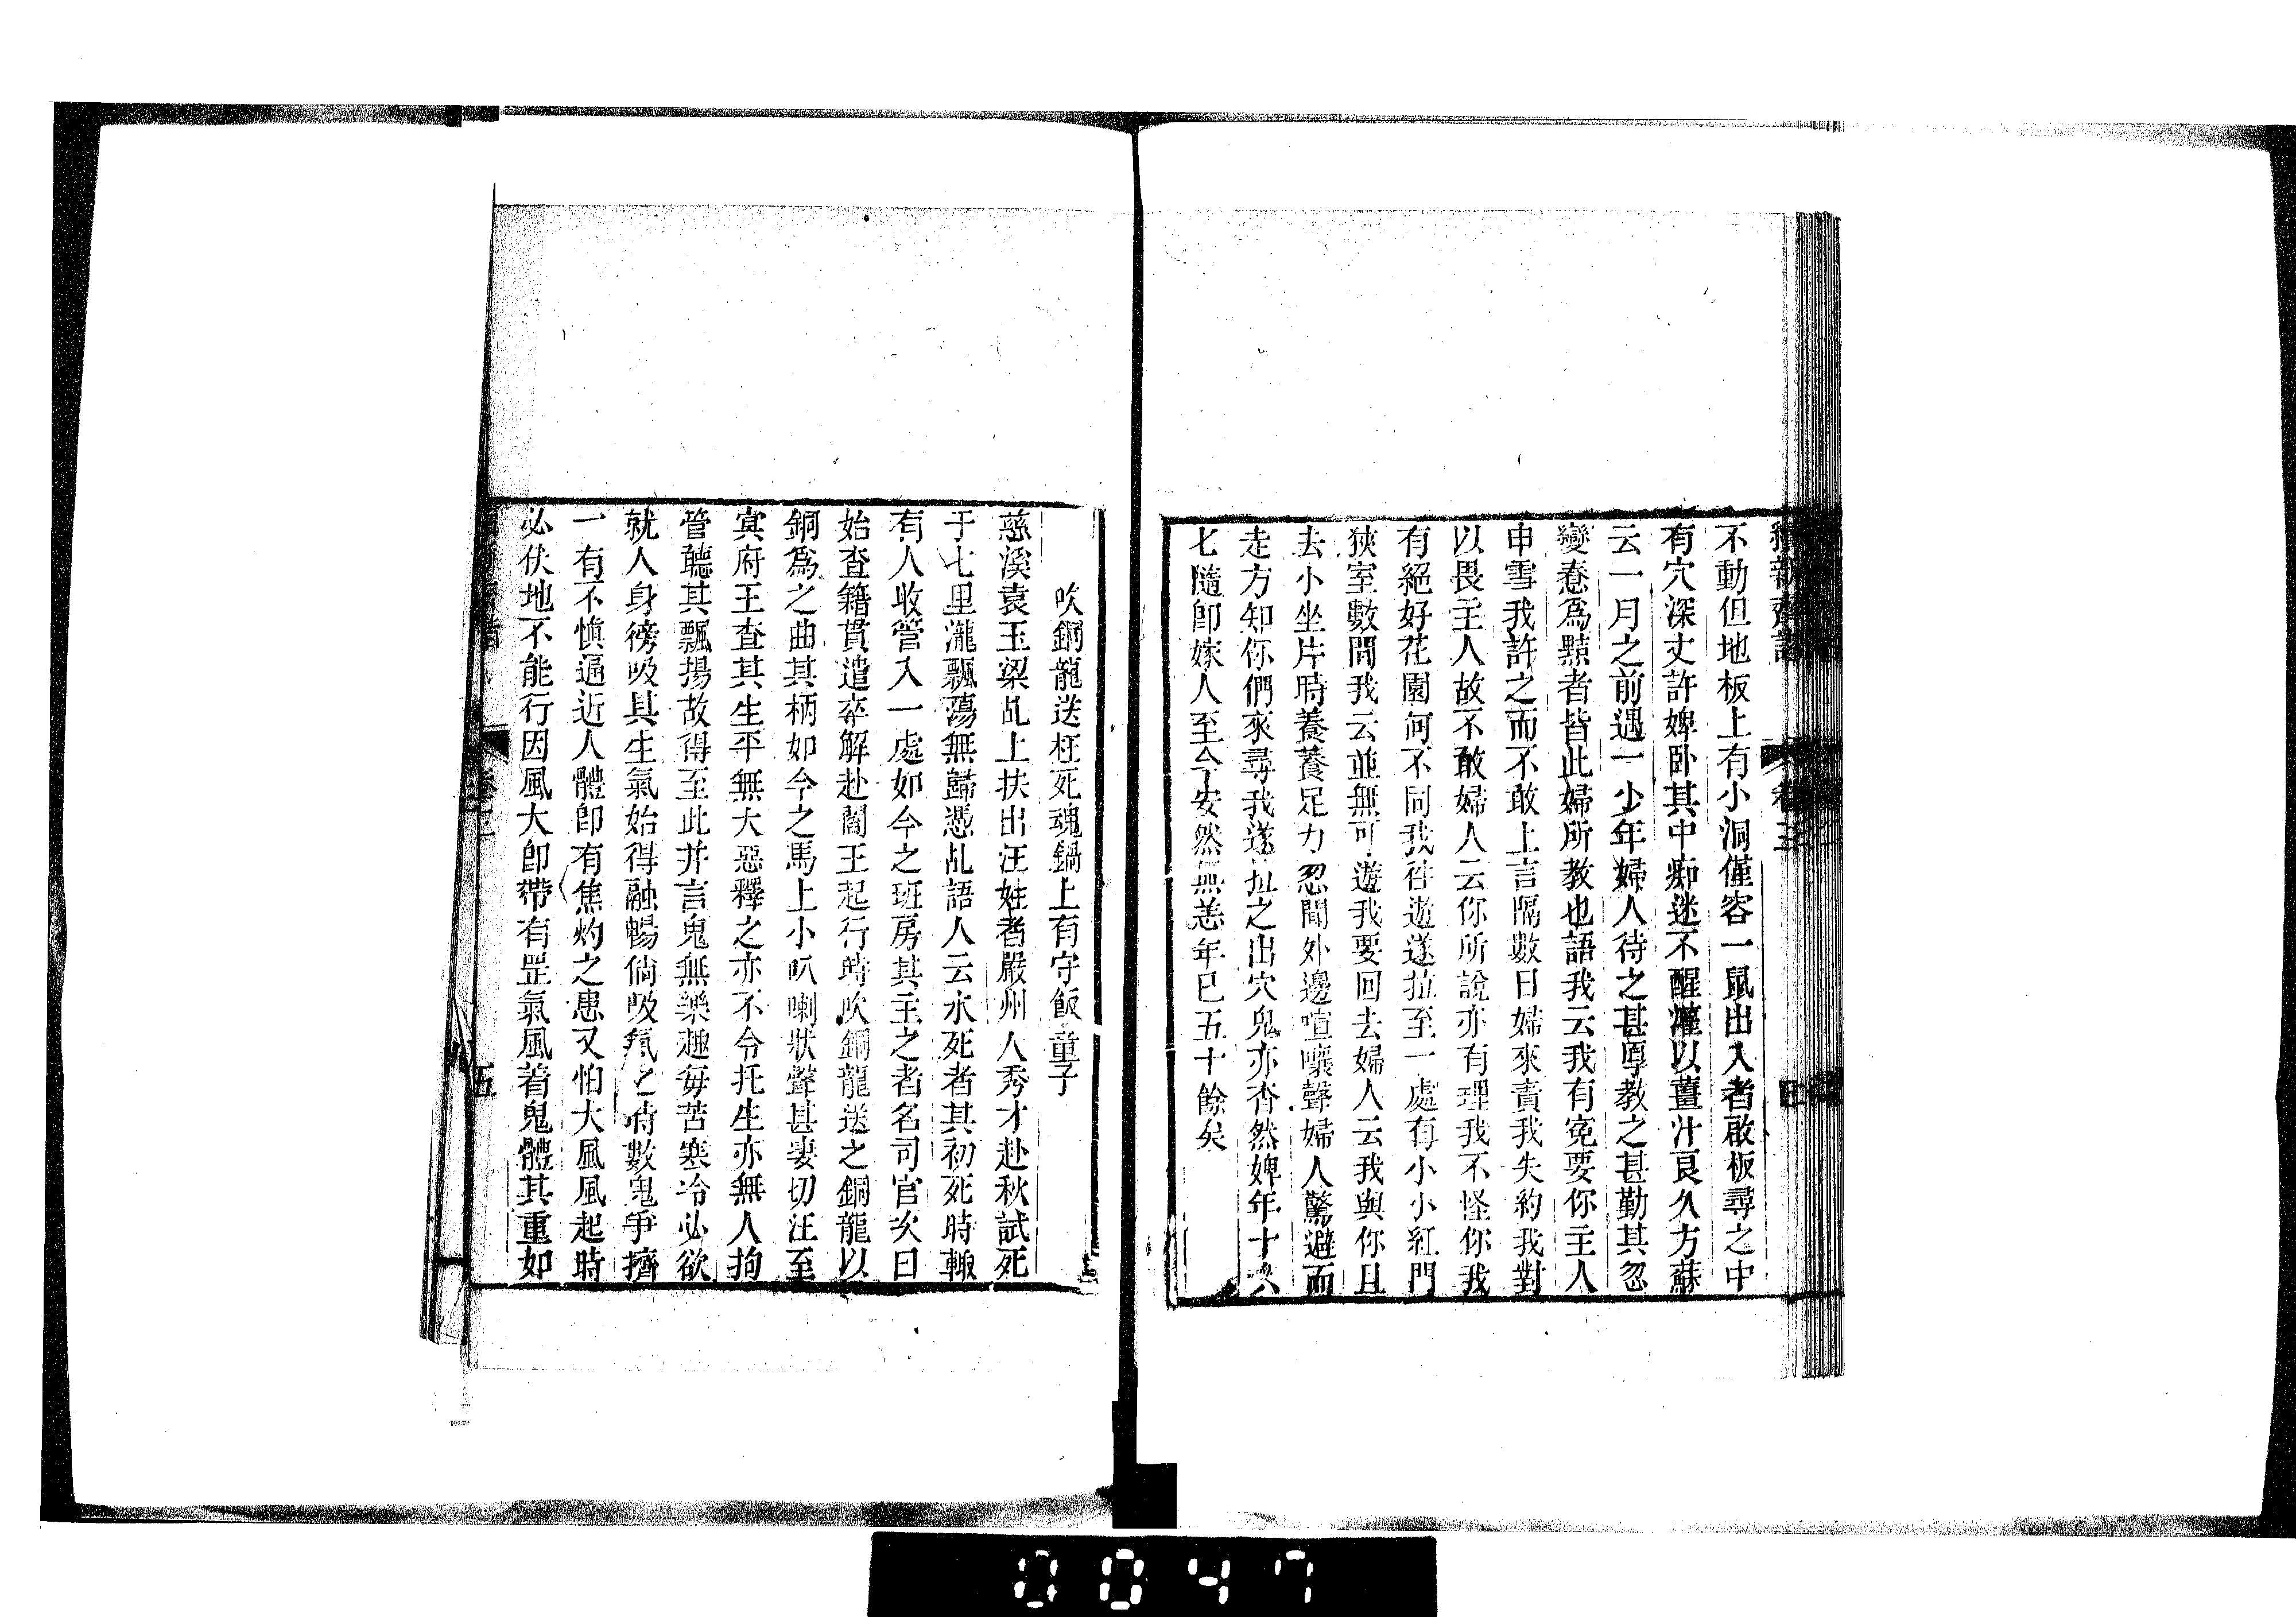 續新齊諧 卷三
不動但地板上有小洞僅容一鼠出入者啟板尋之中
有穴深丈許婢卧其中痴迷不醒灌以薑汁良久方蘇
云一月之前遇一少年婦人待之甚厚教之甚勤其忽
變惷爲黠者皆此婦所教也語我云我有寃要你主人
申雪我許之而不敢上言隔數日婦來責我失約我對
以畏主人故不敢婦人云你所說亦有理我不怪你我
有絕好花園何不同我往遊遂拉至一處有小小紅門
狹室數間我云並無可遊我要回去婦人云我與你且
去小坐片時養養足力忽聞外邊喧嚷聲婦人驚避而
走方知你們來尋我遂扯之出穴鬼亦杳然婢年十六
七隨卽嫁人至今安然無恙年已五十餘矣
吹銅龍送枉死魂鍋上有守飯童子
慈溪袁玉梁乩上扶出汪姓者嚴州人秀才赴秋試死
于七里瀧飄蕩無歸憑乩語人云水死者其初死時輙
有人收管入一處如今之班房其主之者名司官次日
始查籍貫遣卒解赴閻王起行時吹銅龍送之銅龍以
銅爲之曲其柄如今之馬上小叭喇狀聲甚凄切汪至
寅府王查其生平無大惡釋之亦不令托生亦無人拘
管聽其飄揚故得至此并言鬼無樂趣每苦寒冷必欲
就人身徬吸其生氣始得融暢倘吸氣之時數鬼爭擠
一有不愼逼近人體卽有焦灼之患又怕大風風起時
必伏地不能行因風大卽帶有罡氣風着鬼體其重如
卷三 五
0047